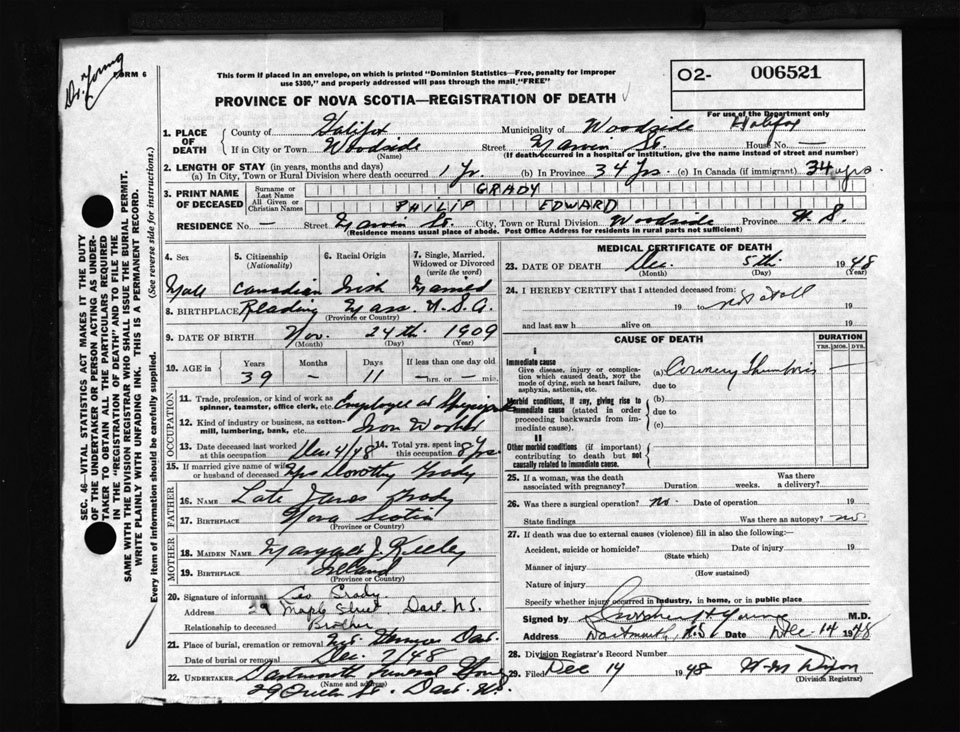 Dr. Young
FORM 6
This form if placed in an envelope, on which is printed "Dominion Statistics—Free, penalty for improper
use $300," and properly addressed will pass through the mail "FREE"
O2- 006521
PROVINCE OF NOVA SCOTIA—REGISTRATION OF DEATH
For use of the Department only
Halifax
1. PLACE OF DEATH
County of Halifax Municipality of Woodside
If in City or Town Woodside Street House No. —
(Name) (If death occurred in a hospital or institution, give the name instead of street and number)
2. LENGTH OF STAY (in years, months and days)
(a) In City, Town or Rural Division where death occurred 1 Yr. (b) In Province 34 Yrs (c) In Canada (if immigrant) 34 yrs.
3. PRINT NAME OF DECEASED
Surname or Last Name GRADY
All Given or Christian Names PHILIP EDWARD
RESIDENCE No. — Street City, Town or Rural Division Woodside Province N.S.
(Residence means usual place of abode. Post Office Address for residents in rural parts not sufficient)
4. Sex 5. Citizenship (Nationality) 6. Racial Origin 7. Single, Married, Widowed or Divorced (write the word)
Male Canadian Irish Married
8. BIRTHPLACE Reading Mass. U.S.A.
(Province or Country)
9. DATE OF BIRTH Nov. 24th 1909
(Month) (Day) (Year)
10. AGE in Years Months Days If less than one day old
39 — 11 —hrs. or — min.
OCCUPATION
11. Trade, profession, or kind of work as spinner, teamster, office clerk, etc. Employee at Shipyards
12. Kind of industry or business, as cotton-mill, lumbering, bank, etc. Iron Worker
13. Date deceased last worked at this occupation Dec 4/48 14. Total yrs. spent in this occupation 8 Yrs
15. If married give name of wife or husband of deceased Mrs Dorothy Grady
FATHER
16. NAME Late James Grady
17. BIRTHPLACE Nova Scotia
(Province or Country)
MOTHER
18. MAIDEN NAME Margaret J. Keeley
19. BIRTHPLACE Ireland
(Province or Country)
20. Signature of informant Leo Grady
Address 29 Maple Street Dart. N.S.
Relationship to deceased Brother
21. Place of burial, cremation or removal Mt. Hermon Dart.
Date of burial or removal Dec. 7/48
22. UNDERTAKER Dartmouth Funeral Home
(Name and address)
29 Queen St. Dart. N.S.
MEDICAL CERTIFICATE OF DEATH
23. DATE OF DEATH Dec. 5th 1948
(Month) (Day) (Year)
24. I HEREBY CERTIFY that I attended deceased from:
19 to not at all 19
and last saw h alive on 19
CAUSE OF DEATH DURATION
YRS. MOS. DYS.
I
Immediate cause
Give disease, injury or complication which caused death, NOT the mode of dying, such as heart failure, asphyxia, asthenia, etc.
(a) Coronary Thrombosis —
due to
Morbid conditions, if any, giving rise to immediate cause (stated in order proceeding backwards from immediate cause).
(b)
due to
(c)
II
Other morbid conditions (if important) contributing to death but not causally related to immediate cause.
25. If a woman, was the death associated with pregnancy? Duration weeks. Was there a delivery?
26. Was there a surgical operation? no. Date of operation 19
State findings Was there an autopsy? no
27. If death was due to external causes (violence) fill in also the following:
Accident, suicide or homicide? Date of injury 19
(State which)
Manner of injury
(How sustained)
Nature of injury
Specify whether injury occurred in industry, in home, or in public place
Signed by Young M.D.
Address Dartmouth, N.S. Date Dec. 14 1948
28. Division Registrar's Record Number
29. Filed Dec 14 1948 Dixon
(Division Registrar)
SEC. 46—VITAL STATISTICS ACT MAKES IT THE DUTY
OF THE UNDERTAKER OR PERSON ACTING AS UNDER-
TAKER TO OBTAIN ALL THE PARTICULARS REQUIRED
IN THE "REGISTRATION OF DEATH" AND TO FILE THE
SAME WITH THE DIVISION REGISTRAR WHO SHALL ISSUE THE BURIAL PERMIT.
WRITE PLAINLY WITH UNFADING INK. THIS IS A PERMANENT RECORD.
Every item of information should be carefully supplied. (See reverse side for instructions.)